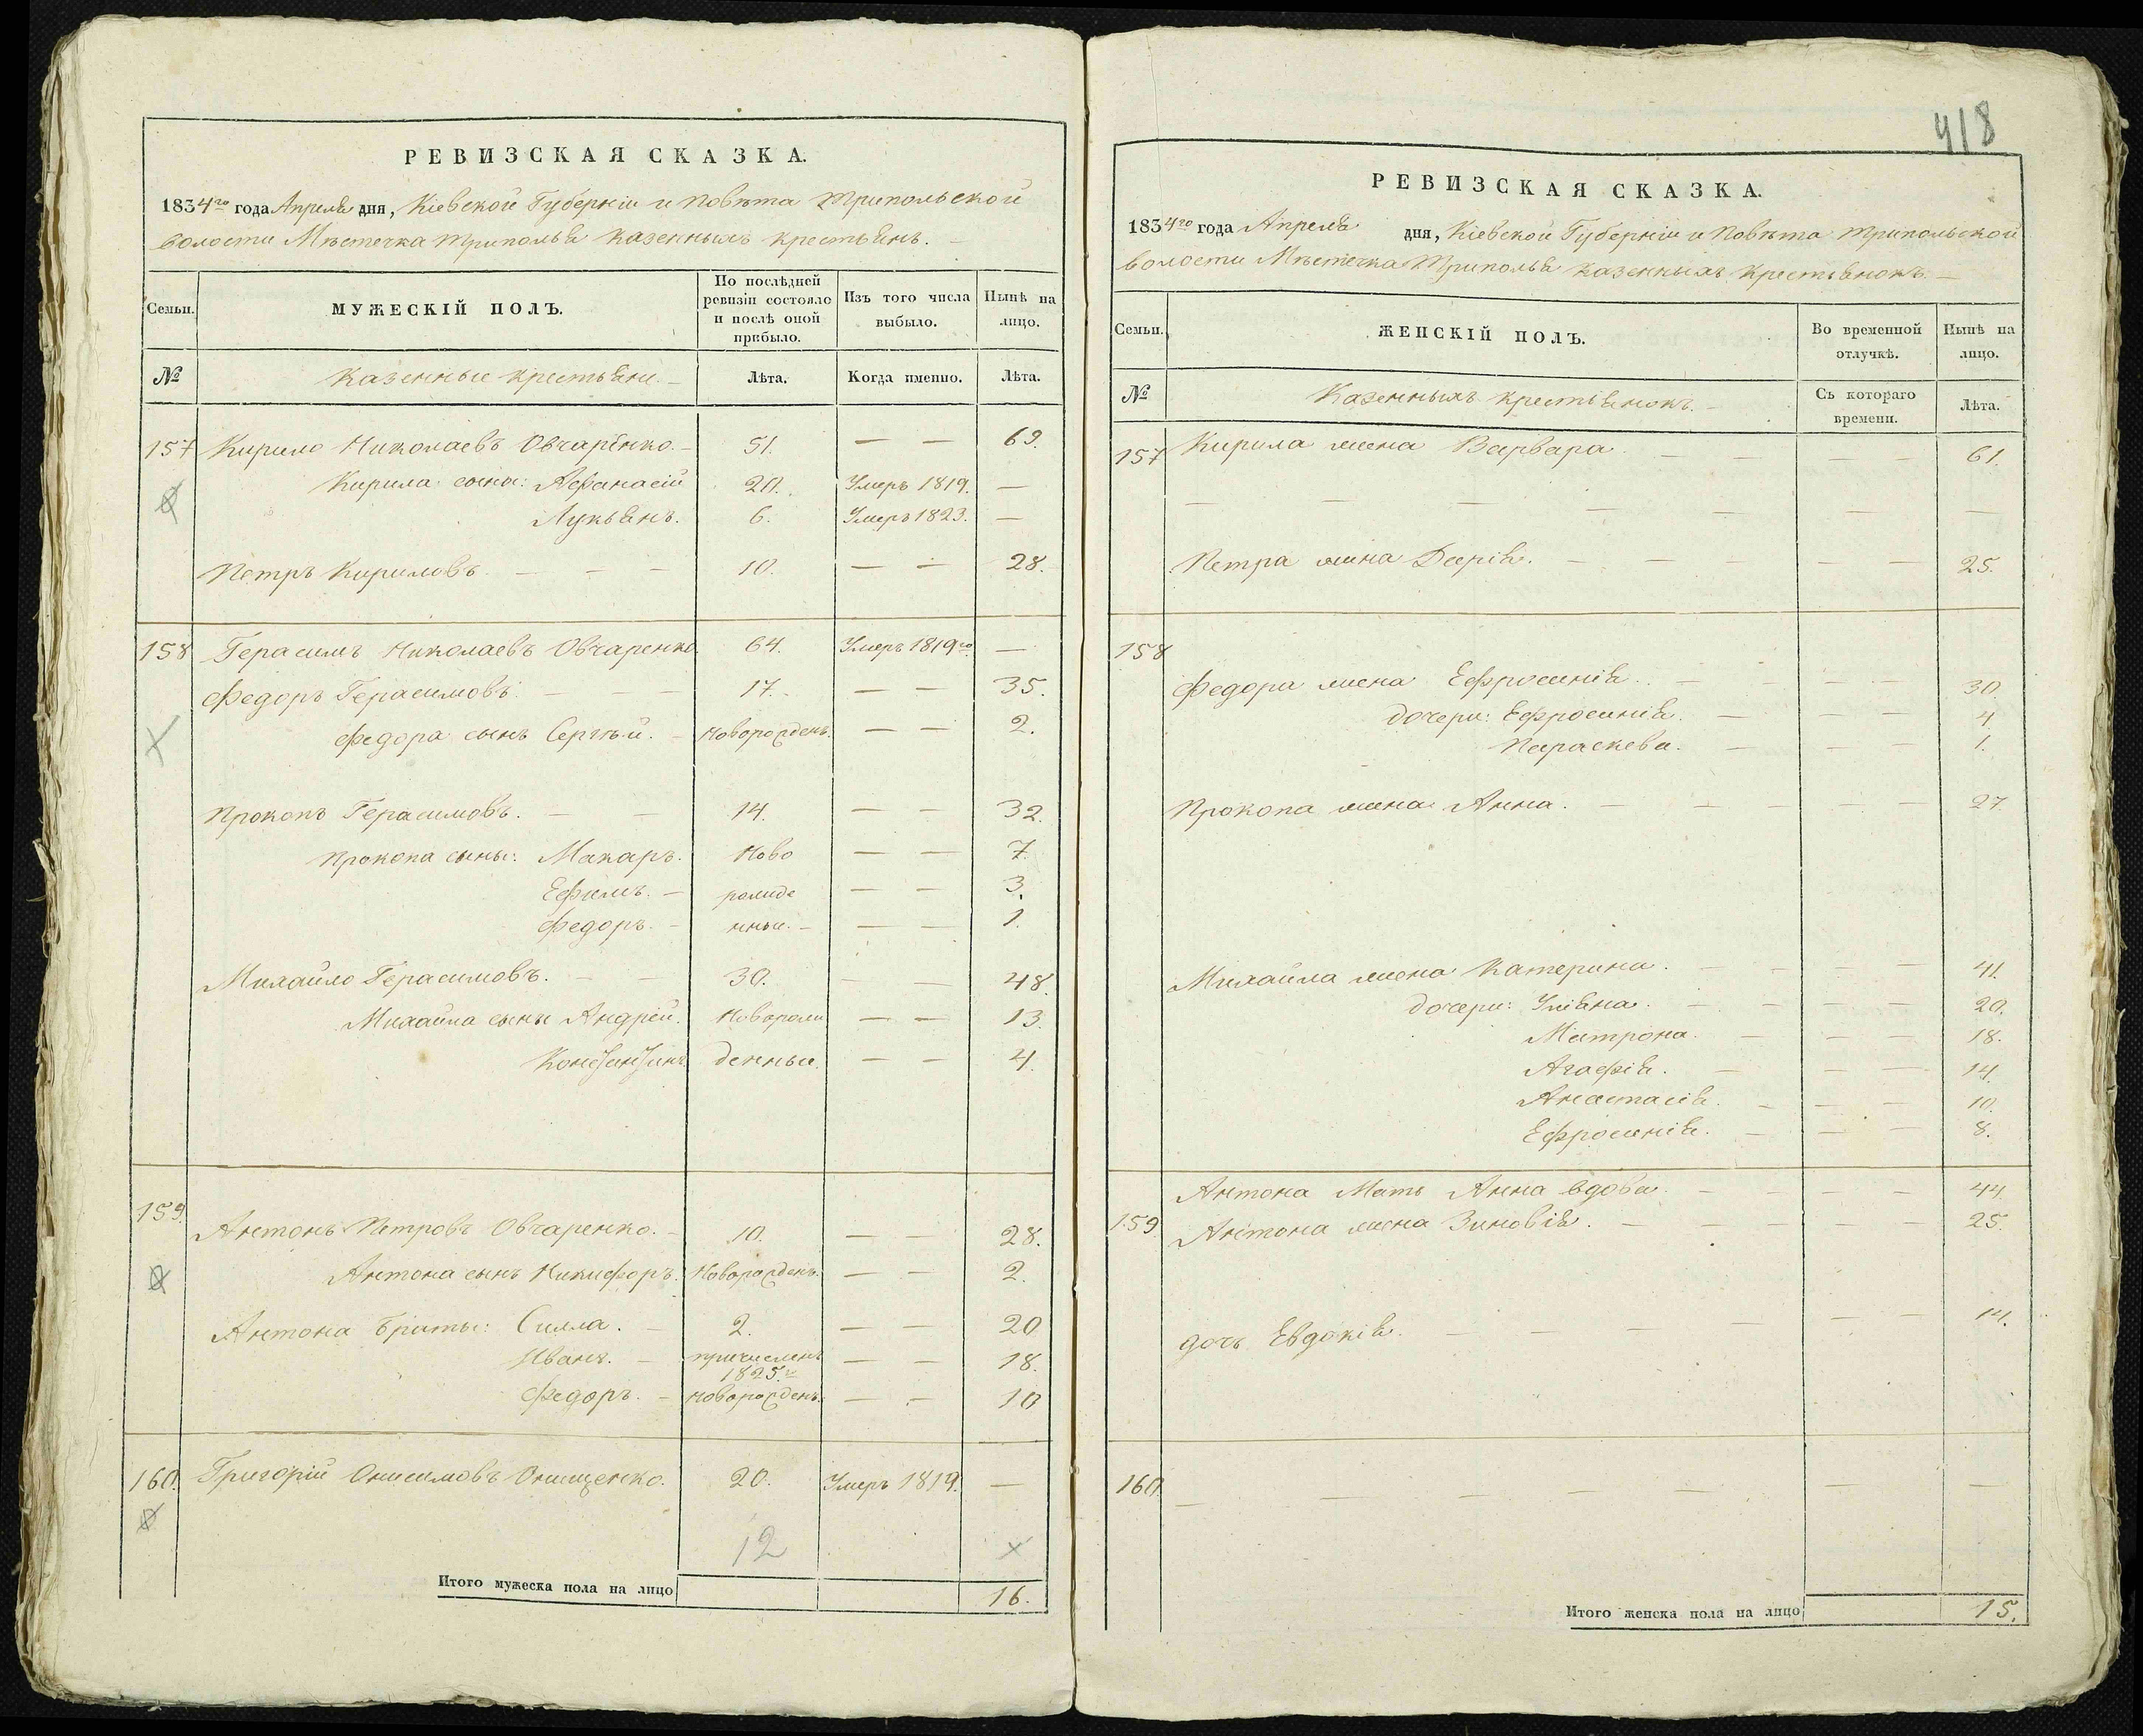 РЕВИЗСКАЯ СКАЗКА.
1834го года Апреля дня, Кіевской Губерніи и Повѣта Трипольской
волости Мѣстечка Триполья казенныхъ крестьянъ. —
Семьи. МУЖЕСКІЙ ПОЛЪ. По послѣдней ревизіи состояло и послѣ оной прибыло. Изъ того числа выбыло. Нынѣ на лицо.
№ Казенные крестьяне. — Лѣта. Когда именно. Лѣта.
157 Кирило Николаевъ Овчаренко. — 51. — — 69.
Кирила сыны: Афанасій 20. Умеръ 1819. —
Лукьянъ. 6. Умеръ 1823. —
Петръ Кириловъ. — — — 10. — — 28.
158 Герасимъ Николаевъ Овчаренко 64. Умеръ 1819го —
Федоръ Герасимовъ. — — — 17. — — 35.
Федора сынъ Сергѣй. — Новорожденъ. — — 2.
Прокопъ Герасимовъ. — — 14. — — 32.
Прокопа сыны: Макаръ. Ново — — 7.
Ефимъ. — рожде — — 3.
Федоръ. — нные. — — — 1.
Михайло Герасимовъ. — — 30. — — 48.
Михайла сыны Андрей. Новорож — — 13.
Константинъ денные. — — 4.
159. Антонъ Петровъ Овчаренко. — 10. — — 28.
Антона сынъ Никифоръ. Новорожденъ. — — 2.
Антона браты: Силла. — 2. — — 20
Иванъ. — причисленъ 1825.г — — 18.
Федоръ. — Новорожденъ. — — 10
160. Григорій Онисимовъ Онищенко. 20. Умеръ 1819. —
12 ×
Итого мужеска пола на лицо 16.
418
РЕВИЗСКАЯ СКАЗКА.
1834го года Апреля дня, Кіевской Губерніи и Повѣта Трипольской
волости Мѣстечка Триполья казенныхъ крестьянокъ. —
Семьи. ЖЕНСКІЙ ПОЛЪ. Во временной отлучкѣ. Нынѣ на лицо.
№ Казенныхъ крестьянокъ. — Съ котораго времени. Лѣта.
157 Кирила жена Варвара. — — — — 61.
— — — — — —
Петра жена Дарія. — — — — — 25.
158
Федора жена Ефросинія. — — — — 30.
дочери: Ефросинія. — — — 4
Параскева. — — — 1.
Прокопа жена Анна. — — — — — 27.
Михайла жена Катерина. — — — — 41.
дочери: Уліяна. — — — — 20.
Матрона. — — — 18.
Агафія. — — — 14.
Анастасія. — — — 10.
Ефросинія. — — — 8.
Антона Мать Анна вдова. — — — — 44.
159. Антона жена Зиновія. — — — — — 25.
дочь Евдокія. — — — — — — 14.
160. — — — — — — —
Итого женска пола на лицо 15.